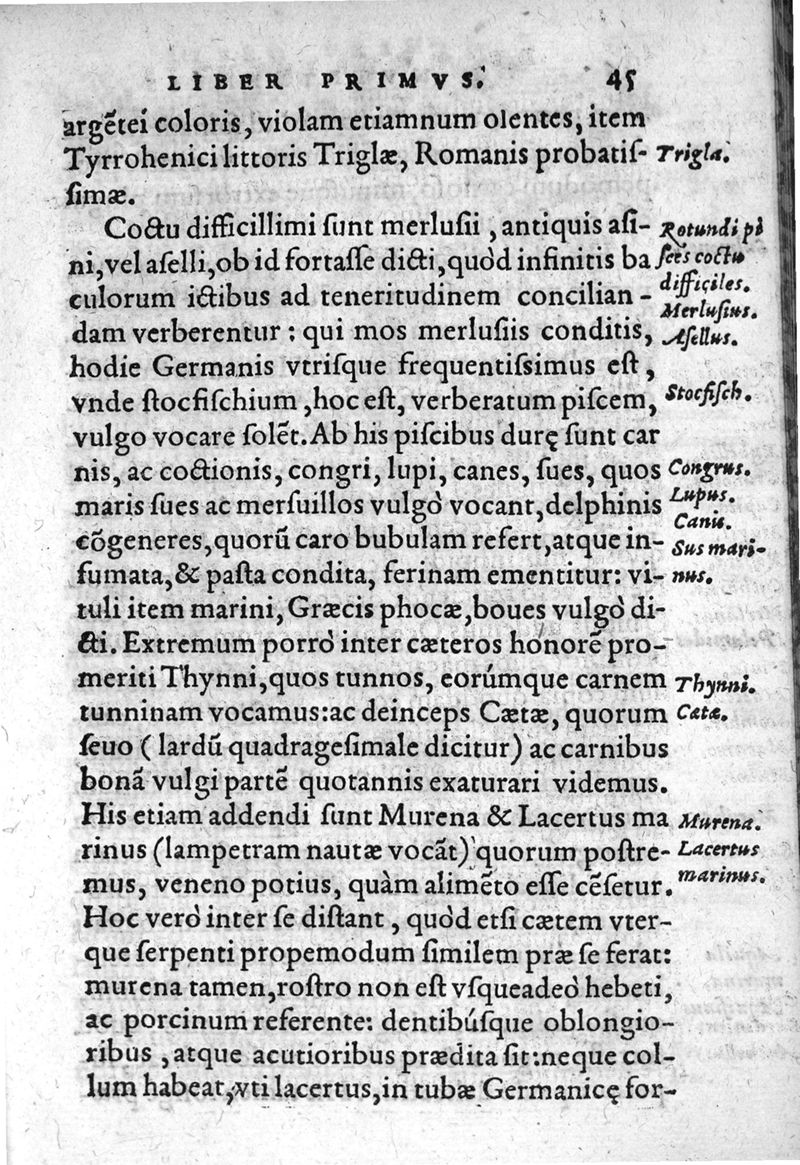 LIBER PRIMVS. 45
argẽtei coloris, violam etiamnum olentes, item
Tyrrohenici littoris Triglæ, Romanis probatiſ-
ſimæ.
Trigla.
Coctu difficillimi ſunt merluſii, antiquis aſi-
ni, vel aſelli, ob id fortaſſe dicti, quòd infinitis ba
culorum ictibus ad teneritudinem concilian-
dam verberentur: qui mos merluſiis conditis,
hodie Germanis vtriſque frequentiſsimus eſt,
vnde ſtocfiſchium, hoc eſt, verberatum piſcem,
vulgo vocare ſolẽt. Ab his piſcibus durę ſunt car
nis, ac coctionis, congri, lupi, canes, ſues, quos
maris ſues ac merſuillos vulgò vocant, delphinis
cõgeneres, quorũ caro bubulam refert, atque in-
fumata, & paſta condita, ferinam ementitur: vi-
tuli item marini, Græcis phocæ, boues vulgò di-
cti. Extremum porrò inter cæteros honorẽ pro-
meriti Thynni, quos tunnos, eorúmque carnem
tunninam vocamus: ac deinceps Cætæ, quorum
ſeuo (lardũ quadrageſimale dicitur) ac carnibus
bonã vulgi partẽ quotannis exaturari videmus.
His etiam addendi ſunt Murena & Lacertus ma
rinus (lampetram nautæ vocãt) quorum poſtre-
mus, veneno potius, quàm alimẽto eſſe cẽſetur.
Hoc verò inter ſe diſtant, quòd etſi cætem vter-
que ſerpenti propemodum ſimilem præ ſe ferat:
murena tamen, roſtro non eſt vſqueadeò hebeti,
ac porcinum referente: dentibúſque oblongio-
ribus, atque acutioribus prædita ſit: neque col-
lum habeat, vti lacertus, in tubæ Germanicę for-
Rotundi pi
ſces coctu
difficiles.
Merluſius.
Aſellus.
Stocfiſch.
Congrus.
Lupus.
Canis.
Sus mari-
nus.
Thynni.
Cæta.
Murena.
Lacertus
marinus.